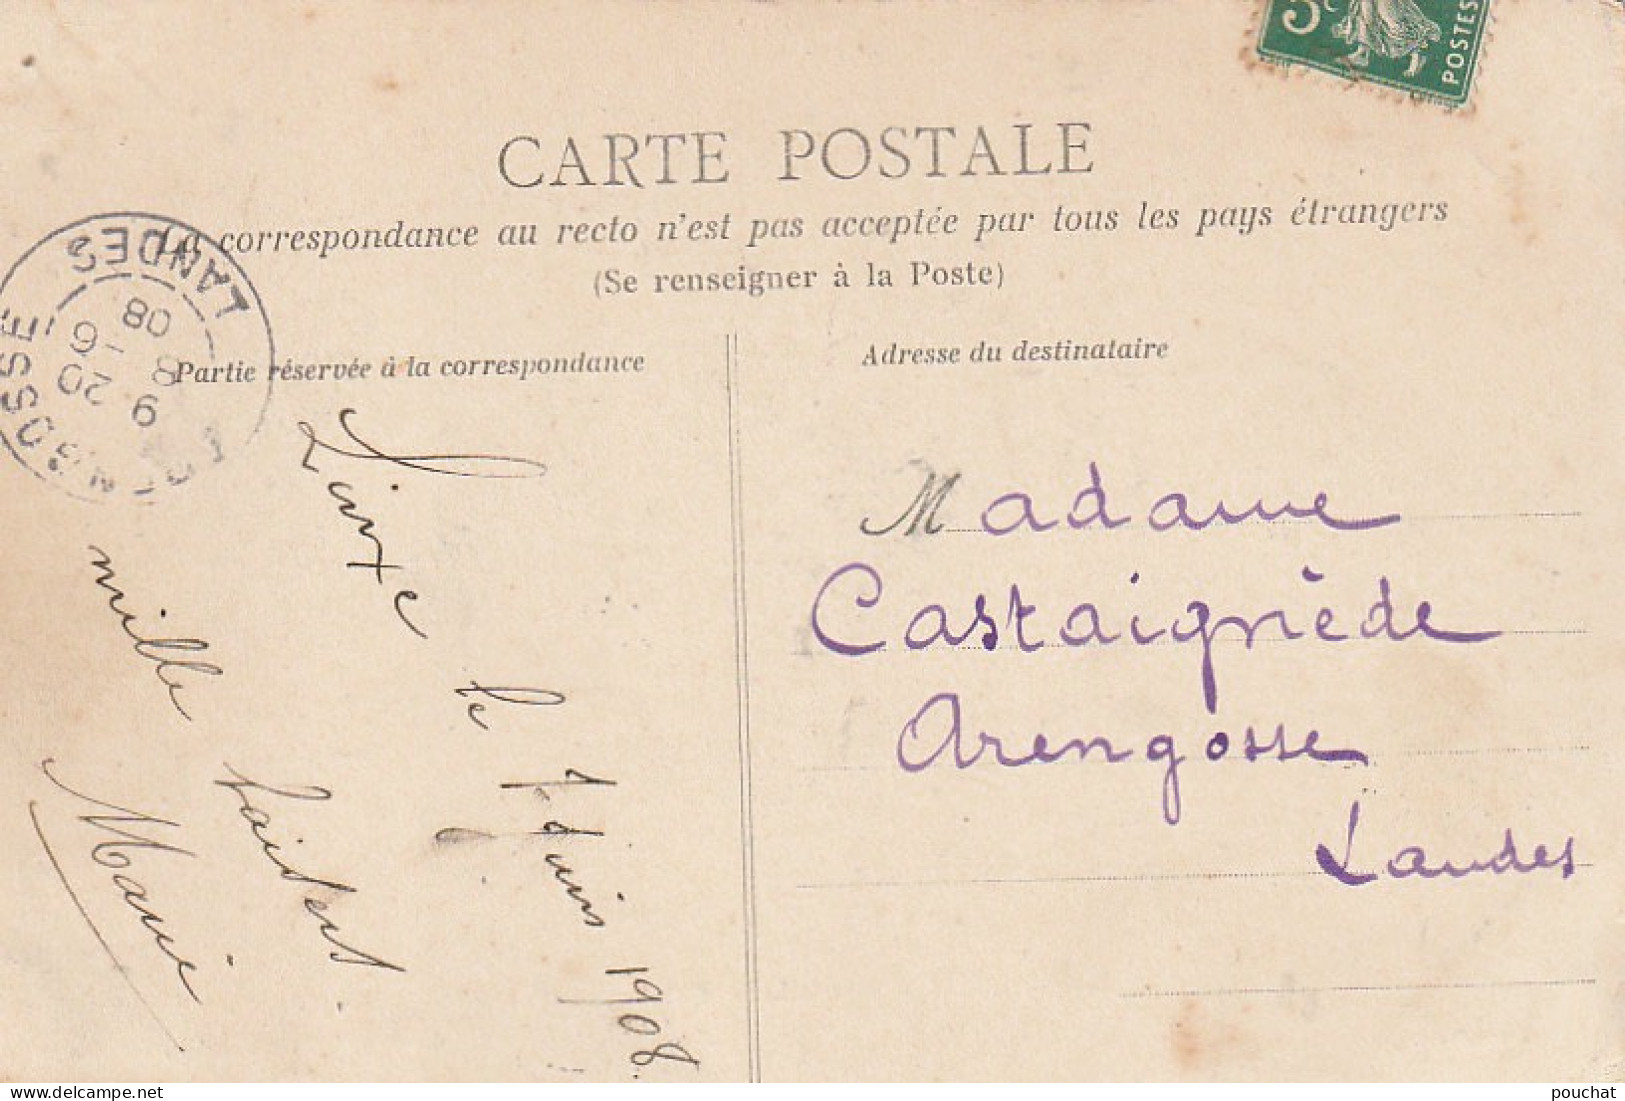 5c
POSTES
CARTE POSTALE
La correspondance au recto n'est pas acceptée par tous les pays étrangers
(Se renseigner à la Poste)
LANDES
OSSE
9 20
8 -6
08
Partie réservée à la correspondance
Adresse du destinataire
Linxe le 7 Juin 1908.
mille baisers.
Marie
Madame
Castaignède
Arengosse
Landes
delcampe.net
pouchat